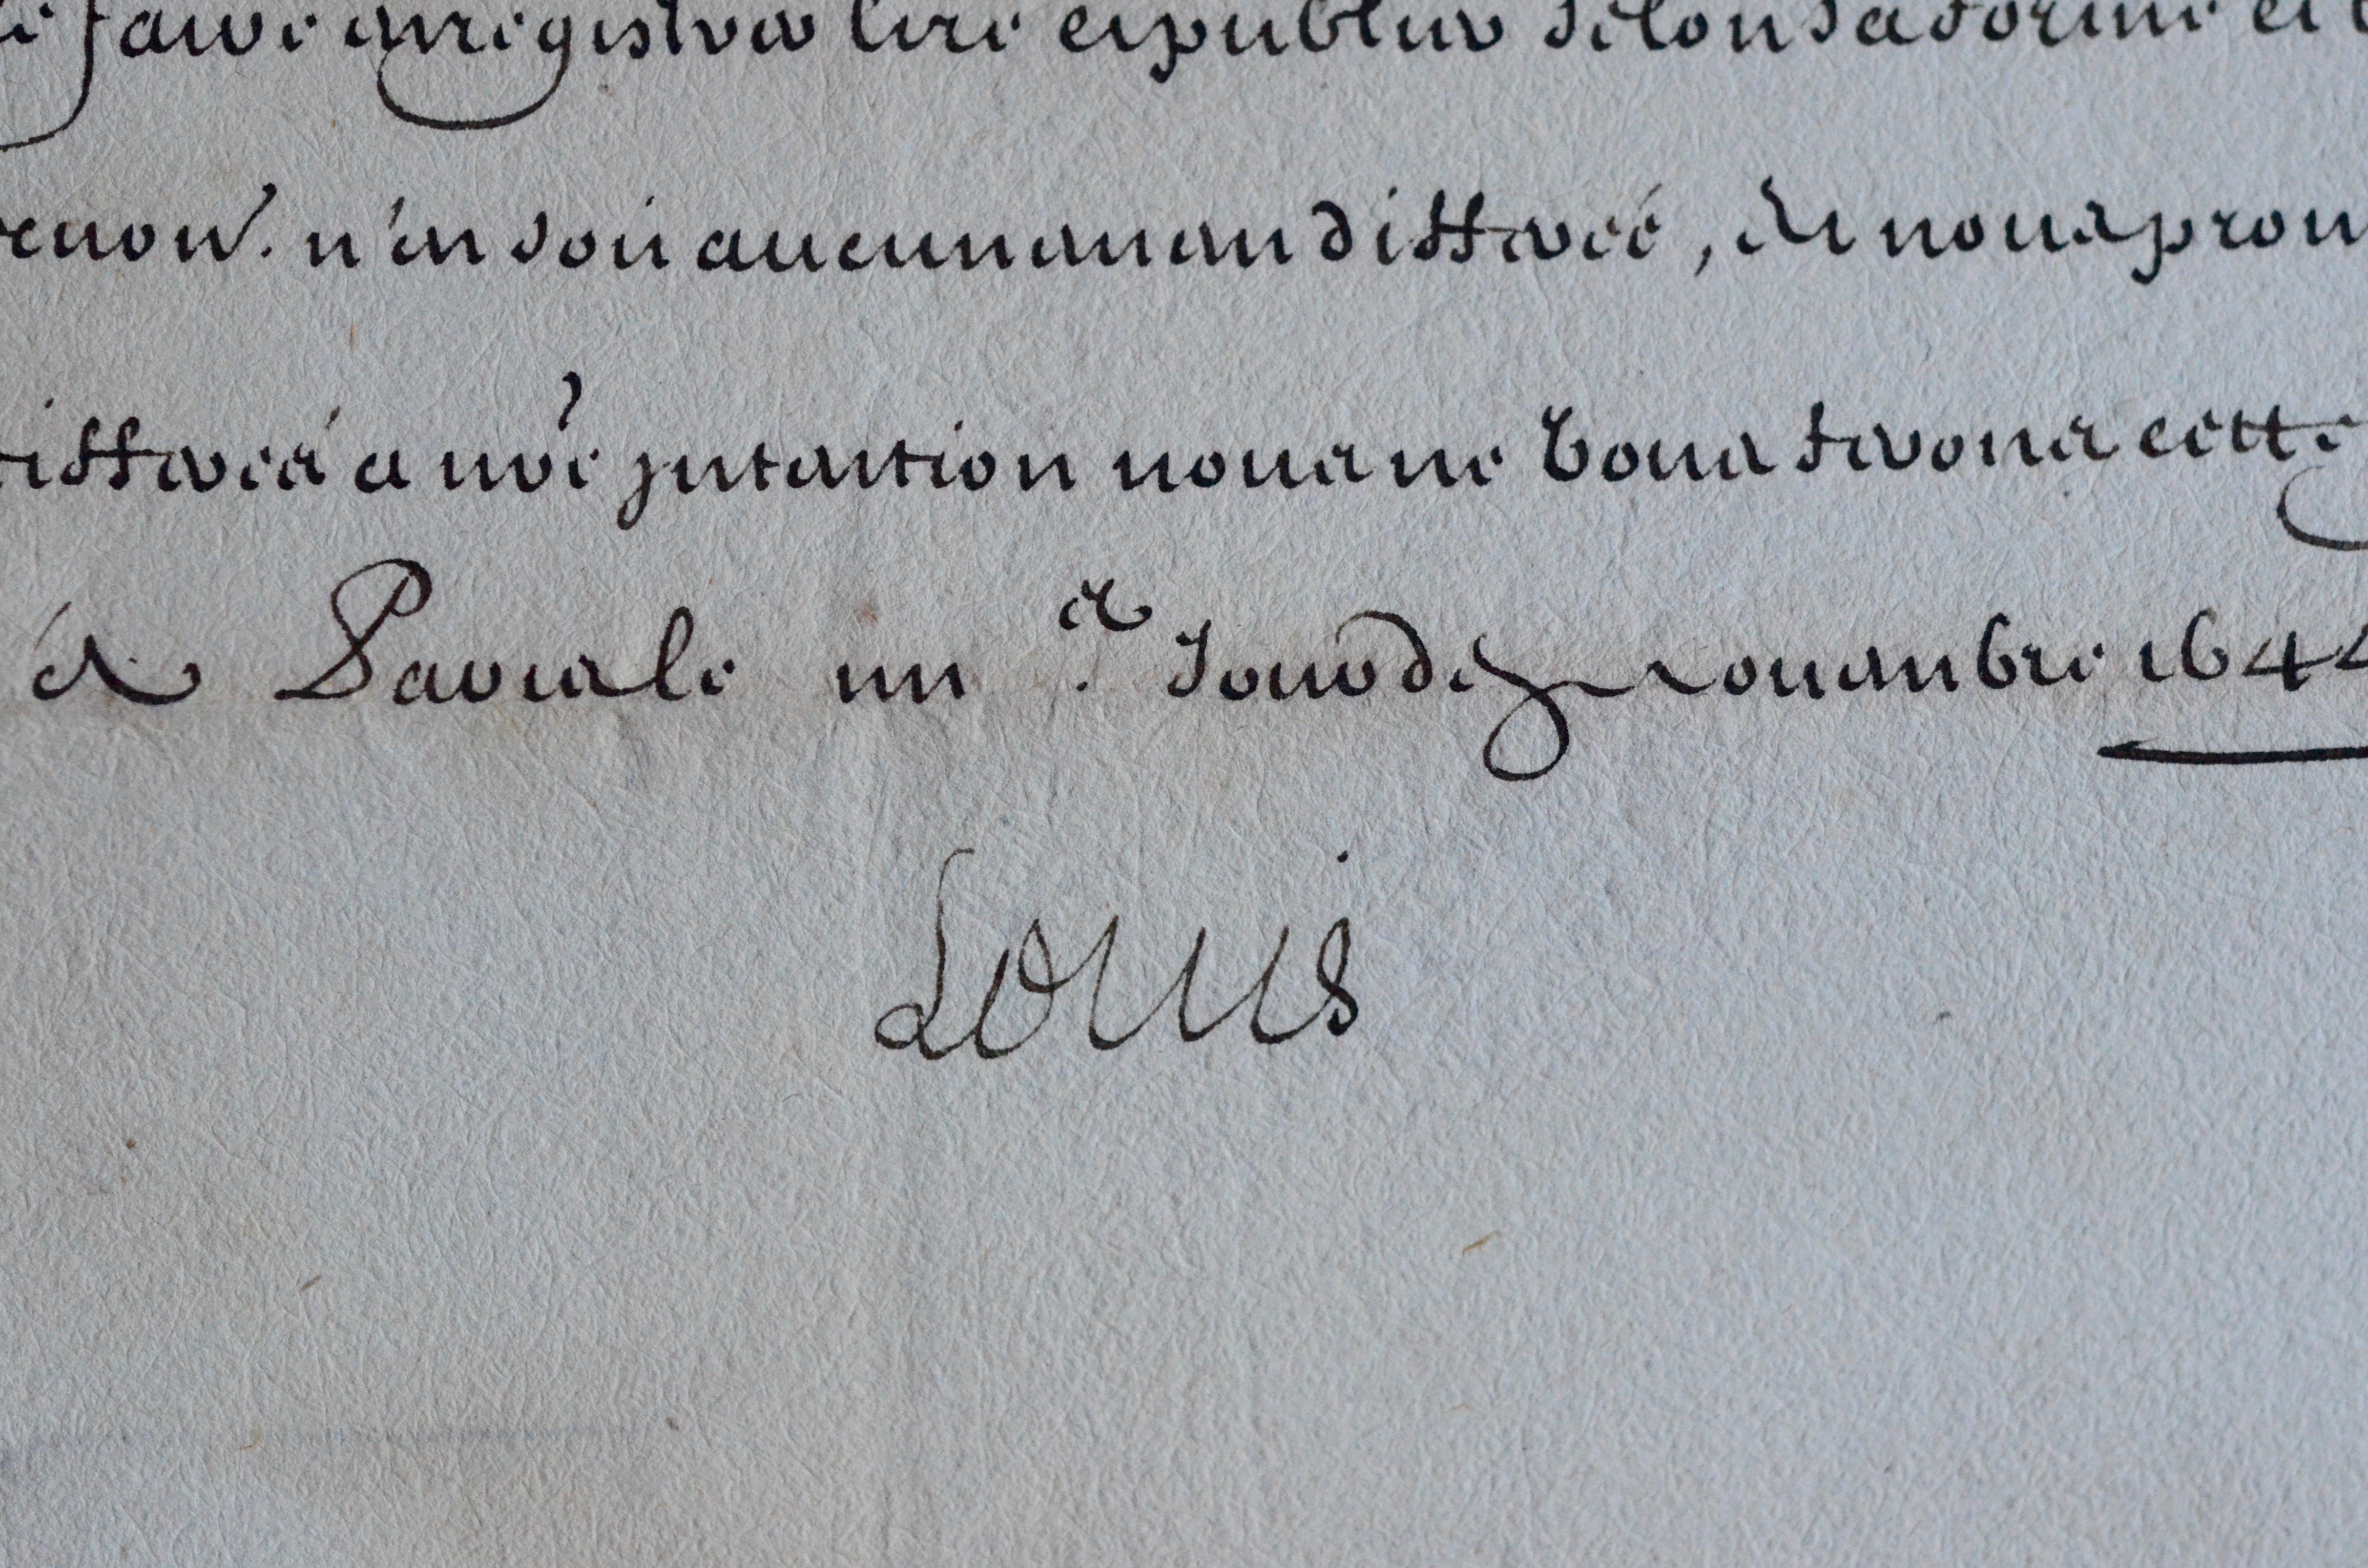 faire enregistrer lire et publier selon sa forme et
n'en soit aucunement differé, et nous prom
differer a nr̃e jntention nous ne vous ferons cette
a Paris le un.e Jour de nouembre 1644
Louis